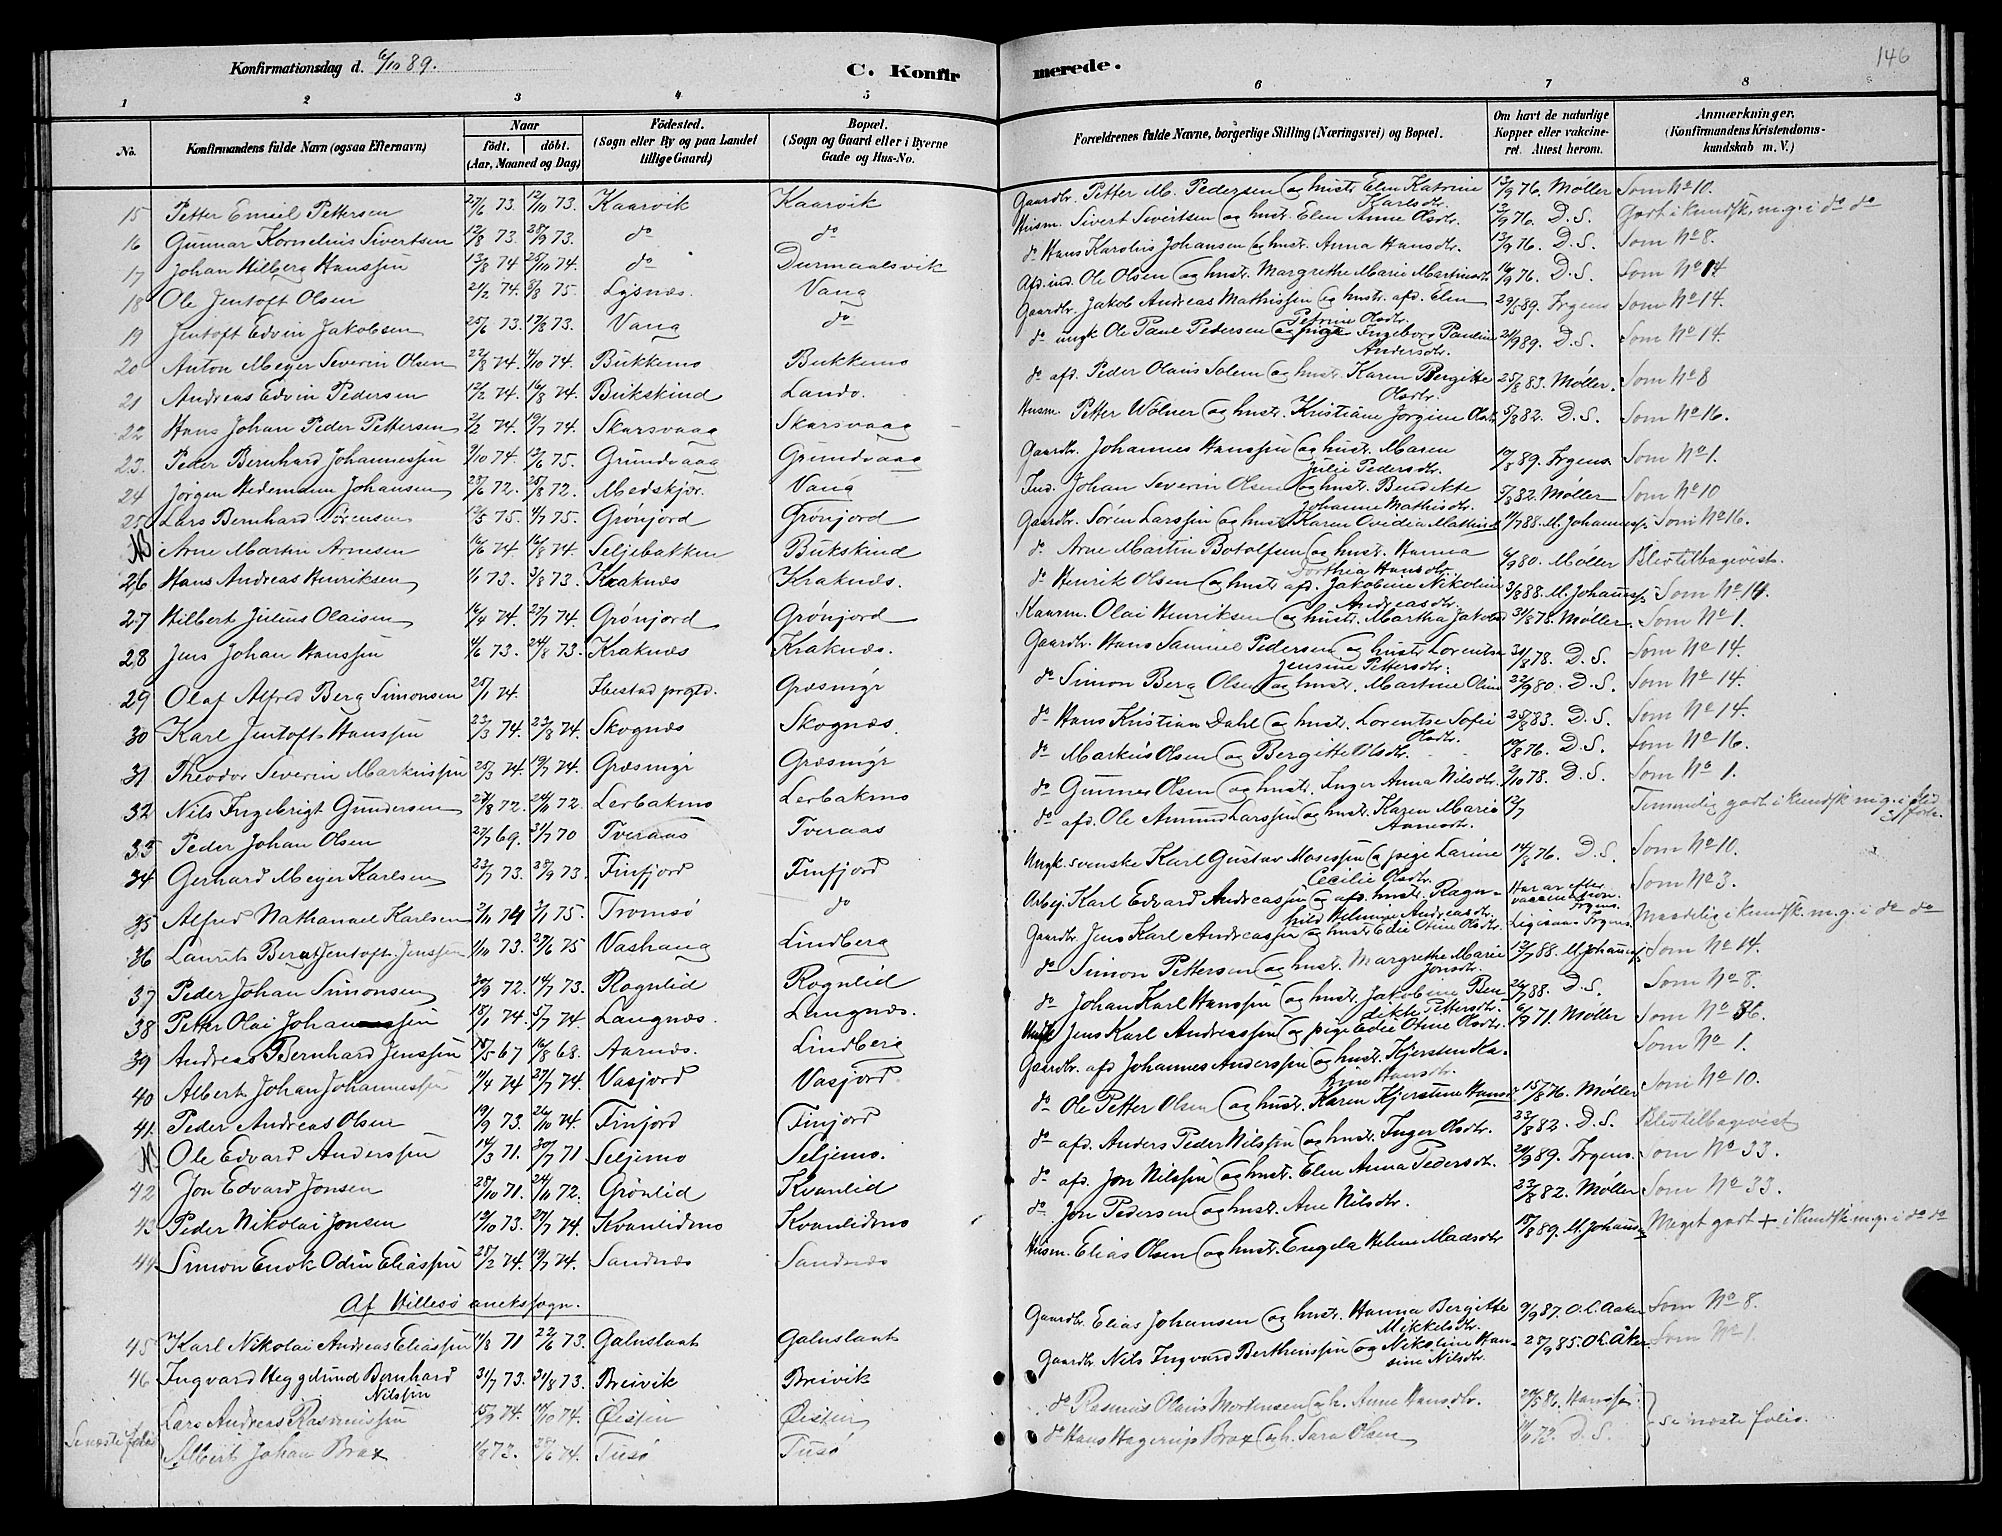 Konfirmationsdag d. 6/10 89.
C. Konfir
merede.
146
1 2 3 4 5 6 7 8
No.
Konfirmandens fulde Navn (ogsaa Efternavn)
Naar
født. døbt.
(Aar, Maaned og Dag)
Fødested.
(Sogn eller By og paa Landet
tillige Gaard)
Bopæl.
(Sogn og Gaard eller i Byerne
Gade og Hus-No.
Forældrenes fulde Navne, borgerlige Stilling (Næringsvei) og Bopæl.
Om havt de naturlige
Kopper eller vakcine-
ret. Attest herom.
Anmærkninger.
(Konfirmandens Kristendoms-
kundskab m. V.)
15 Petter Emil Pettersen 27/6 73. 12/10 73. Kaarvik Kaarvik Gaardbr. Petter M. Pedersen og hustr. Elen Katrine Karlsdtr. 13/9 76. Møller Som No 10.
16 Gunnar Kornelius Sivertsen 12/8 73. 28/9 73. do do Husm. Sivert Sivertsen og hustr. Elen Anne Olsdtr. 12/9 76. D. S. Godt i kundsk. m. g. i do do
17 Johan Hilberg Hanssen 13/8 74 25/10 74. do Durmaalsvik do Hans Karolius Johansen og hustr. Anna Hansdtr. 13/9 76. D. S. Som No 8.
18 Ole Jentoft Olsen 21/2 74. 8/8 75. Lysnæs. Vang Afd. ind. Ole Olsen og hustr. Margrethe Marie Martinsdtr. 16/9 76. D. S. Som No 14
19 Jentoft Edvin Jakobsen 25/6 73. 17/8 73. Vang do Gaardbr. Jakob Andreas Mathissen og hustr. afd. Elen Petrine Olsdtr. 29/5 89. Irgens Som No 14.
20 Anton Meyer Severin Olsen 22/8 74. 4/10 74. Bukkemo Bukkemo do ungk. Ole Pane Pedersen og pige Ingeborg Pauline Andersdtr. 21/9 89. D. S. Som No 14.
21 Andreas Edvin Pedersen 12/2 74. 16/8 74. Bukskind Landv. do afd. Peder Olais Solem og hustr. Karen Bergitte Olsdtr. 25/8 83. Møller. Som No 8
22 Hans Johan Peder Pettersen 2/2 74. 19/7 74. Skarsvaag Skarsvaag Husm. Petter Wolner og hustr. Kristiane Jorgine Olsdtr. 5/8 82. D. S. Som No 16.
23. Peder Bernhard Johannessen 9/10 74. 13/6 75. Grundvaag Grundvaag Gaardbr. Johannes Hanssen og hustr. Maren Julie Pedersdtr. 19/8 89. Irgens. Som No 1.
24 Jørgen Hedemann Johansen 23/6 72. 25/8 72. Medskjær. Vang Ind. Johan Severin Olsen og hustr. Benedikte Johanne Mathisdtr. 5/8 82. Møller Som No 10
25 Lars Bernhard Sørensen 13/5 75. 4/7 75. Grønjord Grønjord Gaardbr. Sören Larssen og hustr. Karen Ovidia Mathisd. 11/7 88. M. Johannes. Som No 16.
Arne Martin Arnesen 16/6 74. 16/8 74. Seljebakken Bukskind do Arne Martin Botolfsen og hustr. Hanna Dorthia Hansdtr. 6/9 80. Møller Blev tilbagevist.
26 Hans Andreas Henriksen 1/1 73. 3/8 73. Kraknæs Kraknæs. do Henrik Olsen og hustr. afd. Jakobine Nikoline Andreasdtr. 3/8 88. M. Johannes. Som No 14.
27 Hilbert Julius Olaisen 16/4 74. 27/7 74. Grønjord Grønjord Kaarm. Olai Henriksen og hustr. Martha Jakobsd 31/8 78. Møller. Som No 1.
28 Jens Johan Hanssen 4/6 73. 24/8 73. Kraknæs Kraknæs. Gaardbr. Hans Samuel Pedersen og hustr. Lorentse Jensine Pettersdtr. 31/8 78. D. S. Som No 14.
29 Olaf Alfred Berg Simonsen 25/1 74. Ibestad prgtd. Græsmyr do Simon Berg Olsen og hustr. Martine Olsd. 22/9 80. D. S. Som No 14.
30 Karl Jentoft Hanssen 23/3 74. 23/8 74. Skognæs Skognæs. do Hans Kristian Dahl og hustr. Lorentse Sofie Olsdtr. 25/8 83. D. S. Som No 14.
31 Theodor Severin Markussen 25/3 74. 19/7 74. Græsmyr Græsmyr do Markus Olsen og Bergitte Olsdtr. 19/8 76. D. S. Som No 16.
32 Nils Ingebrigt Gundersen 27/8 72. 24/11 72. Lerbakmo Lerbakmo do Gunner Olsen og hustr. Inger Anna Nilsdtr. 2/10 78. D. S. Som No 1.
33 Peder Johan Olsen 27/7 69. 31/7 70 Tveraas Tveraas do afd. Ole Amund Larssen og hustr. Karen Marie Arnesdtr. 12/7 Temmelig godt i kundsk. m. g. i
34 Gerhard Meyer Karlsen 23/7 73. 28/9 73. Finfjord Finfjord Ungk. svenske Karl Gustav Mosessen og pige Larine Cecilie Olsdtr. 14/8 76. D. S. Som No 10.
35 Alfred Nathanael Karlsen 2/11 74 3/1 75. Tromsø do Arbej. Karl Edvard Andreassen og afd. hustr. Ragnhild Helmine Andreasdtr. Har ar efter vaccination. Irgens. Som No 3.
36 Laurits Berat Jentoft Jenssen 1/10 73. 27/6 75 Vashaug Lindberg Gaardbr. Jens Karl Andreassen og hustr. Edie Oline Olsdtr. Ligesaa. Irgens. Maadelig i kundsk. m. g. i do do
37 Peder Johan Simonsen 29/9 72. 14/7 73. Rognlid Rognlid do Simon Pettersen og hustr. Margrethe Marie Jonsdtr. 13/7 88. M. Johannes. Som No 14.
38 Petter Olai Johanssen 18/1 74. 5/7 74. Langnæs. Langnæs. do Johan Karl Hanssen og hustr. Jakobine Bendikte Pettersdtr. 24/7 88. D. S. Som No 8.
39 Andreas Bernhard Jenssen 18/5 67 16/8 68. Aarnæs. Lindberg Ungk. Jens Karl Andreassen og pige Edie Oline Olsdtr. 6/9 71. Møller Som No 36.
40 Albert Johan Johannessen 11/4 74 27/7 74. Vasjord Vasjord. Gaardbr. afd Johannes Anderssen og hustr. Kjersten Katrine Hansdtr. Som No 1.
41. Peder Andreas Olsen 19/9 73. 26/10 74. Finjord Finjord do Ole Petter Olsen og hustr. Karen Kjerstine Hansd. 15/8 76. Møller Som No 10.
Ole Edvard Anderssen 14/3 71. 30/7 71 Seljemo Seljemo. do afd. Anders Peder Nilssen og hustr. Inger Olsdtr. 23/8 82. D. S. Blev tilbagevist
42 Jon Edvard Jonsen 28/10 71. 24/11 72. Grønlid Kvanlid do afd. Jon Nilssen og hustr. Elen Anna Pedersdtr. 20/9 89. Irgens. Som No 33.
43 Peder Nikolai Jonsen 12/10 73. 27/7 74. Kvanlidmo Kvanlidmo do Jon Pedersen og hustr. Ane Nilsdtr. 23/8 82. Møller Som No 33.
44 Simon Enok Odin Eliassen 28/2 74. 19/7 74. Sandnæs Sandnæs Husm. Elias Olsen og hustr. Engela Heline Madsdtr 15/8 89. M. Johannes. Meget godt + i kundsk. m. g. i do do
Af Hillesø anekssogn.
45 Karl Nikolai Andreas Eliassen 11/8 71 22/6 73. Galnslaat Galnslaat Gaardbr. Elias Johansen og hustr. Hanna Bergitte Mikkelsdtr. 9/9 87. O. L. Aaker Som No 8.
46 Ingvard Heggelund Bernhard Nilssen 31/7 73. 31/8 73. Breivik Breivik Gaardbr. Nils Ingvard Berthenssen og Nikoline Hansine Nilsdtr. 28/9 85. O. L. Åker. Som No 1.
Lars Andreas Rasmussen 15/9 74. 18/10 74. Øisten Øisten do Rasmus Olaus Mortensen og h. Anne Hansdtr. 29/5 86. Hanssen.
Se næste folio Albert Johan Brox 1/8 73. 28/6 74. Tusø Tusø do Hans Hagerup Brox og h. Sara Olsen 11/11 73. D. S. se næste folio.